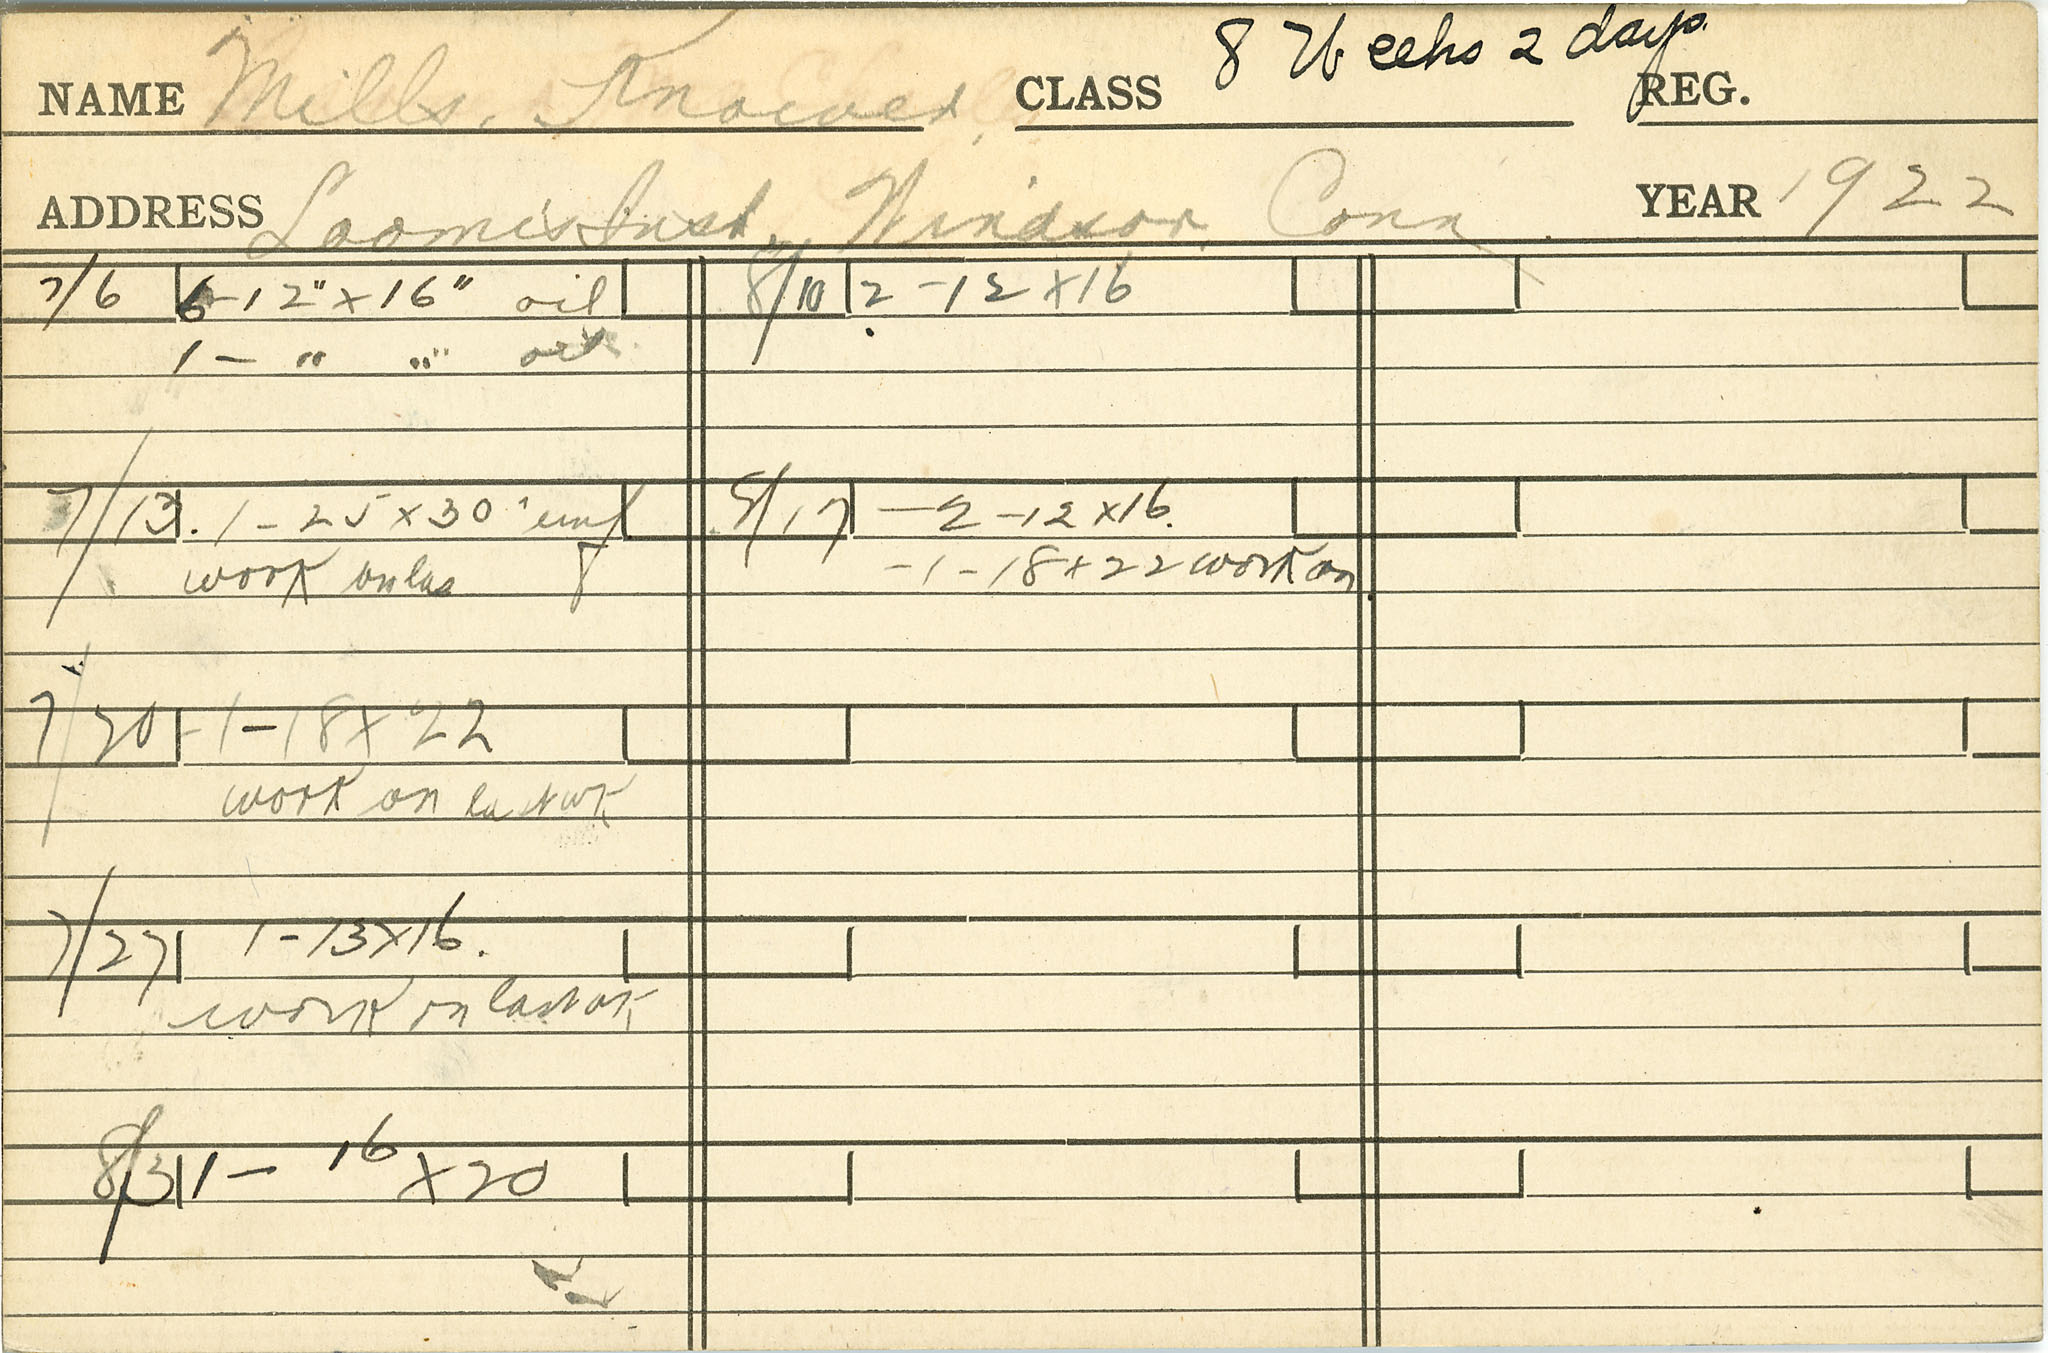 8 Weeks 2 days.
NAME Mills, Knower CLASS REG.
ADDRESS Loomis Inst. Windsor, Conn. YEAR 1922
7/6 6-12" x 16" oil
1 - " "
7/13 . 1 - 25 x 30
work on las
7/20 - 1 - 18 x 22
work on last wk
7/27 1 - 13 x 16.
work on last wk
8/3 1 - 16 x 20
8/10 2 - 12 x 16
8/17 - 2 - 12 x 16.
- 1 - 18 x 22 work on